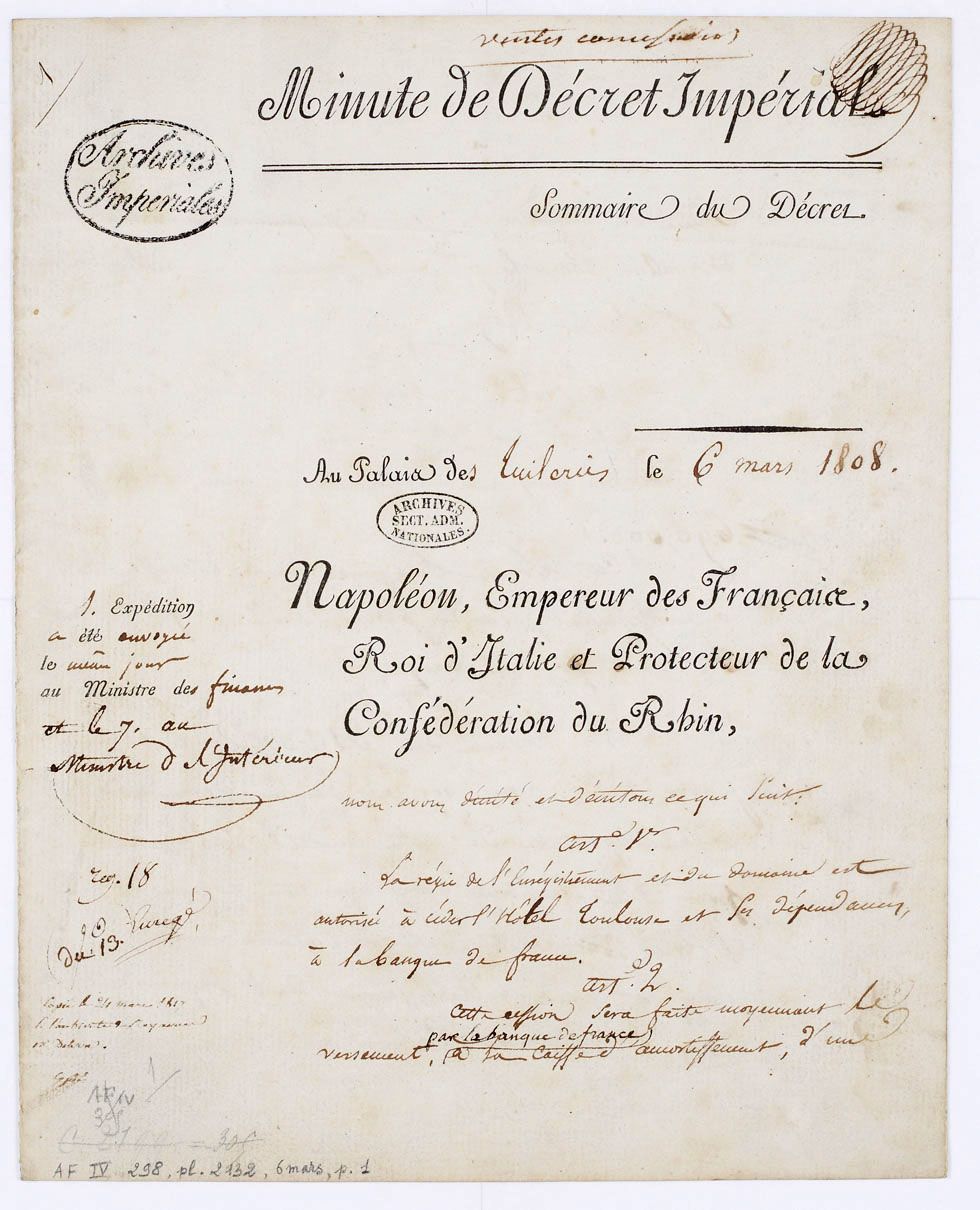 ventes
Minute de Décret Impérial
Archives
Impériales
Sommaire du Décret.
Au Palais des Tuileries le 6 mars 1808.
ARCHIVES
SECT. ADM.
NATIONALES.
Napoléon, Empereur des Français,
Roi d'Italie et Protecteur de la
Confédération du Rhin,
1. Expédition
a été envoyée
le même jour
au Ministre des finances
et le 7. au
Ministre d l'Intérieur
nous avons décrété et décrétons ce qui suit.
art. 1er
La régie de l'Enregistrement et du domaine est
autorisée à céder l'Hôtel Toulouse et ses dépendances,
à la banque de france.
art. 2.
Cette cession sera faite moyennant le
par la banque de france
versement, à la Caisse d'amortissement, d'une
reg. 18
du 13.
Copié le 24 mars
AF IV
AF IV 298, pl. 2132, 6 mars, p. 1